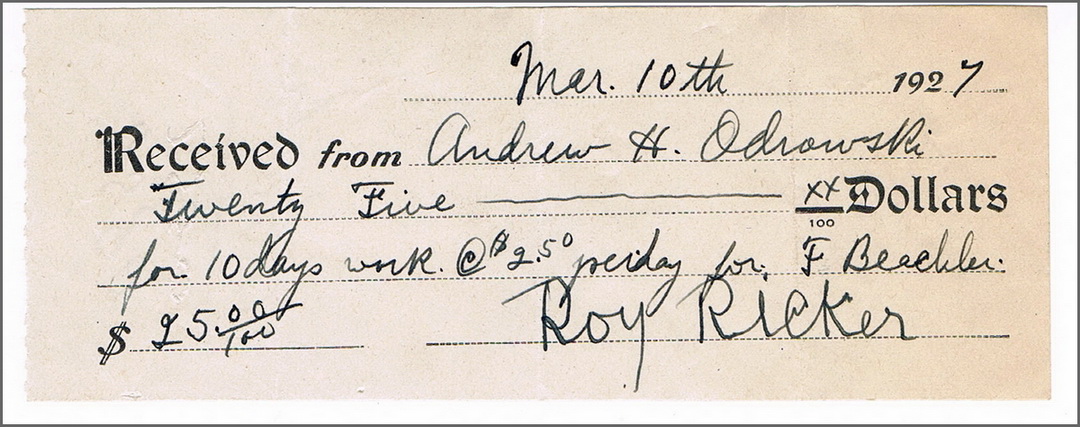 Mar. 10th 1927
Received from Andrew H. Odrowski
Twenty Five XX/100 Dollars
for 10 days work. @ $2.50 per day for. F Beachler.
$ 25.00/100 Roy Ricker